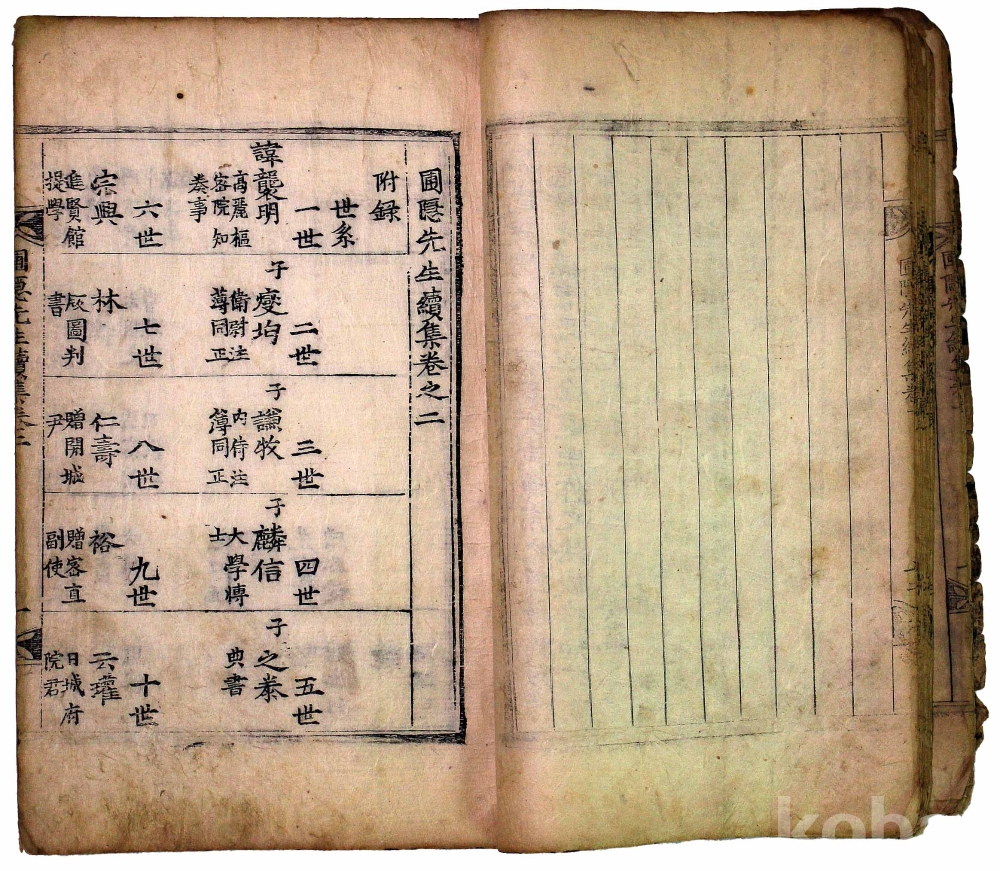 圃隱先生續集卷之二
附録
世系
一世
諱襲明
高麗樞
密院知
奏事
二世
子燮均
衛尉注
簿同正
三世
子謙牧
内侍注
簿同正
四世
子麟信
大學博
士
五世
子之泰
典書
六世
宗興
進賢館
提學
七世
林
版圖判
書
八世
仁壽
贈開城
尹
九世
裕
贈密直
副使
十世
云瓘
日城府
院君
圃隱先生續集卷二
一
圃隱先生續集卷
kob